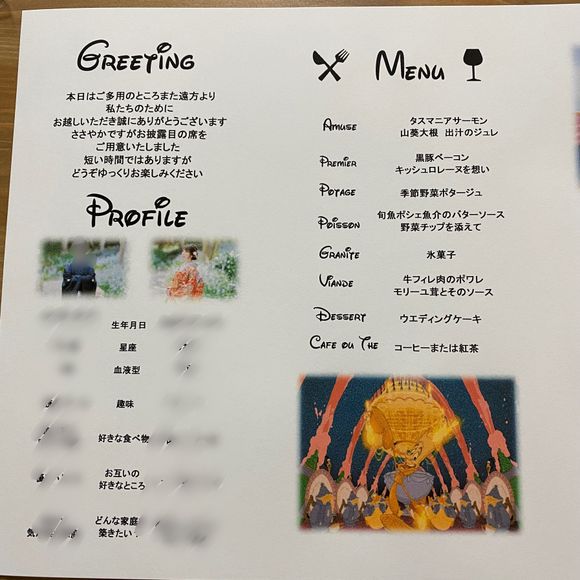 GREETING
本日はご多用のところまた遠方より
私たちのために
お越しいただき誠にありがとうございます
ささやかですがお披露目の席を
ご用意いたしました
短い時間ではありますが
どうぞゆっくりお楽しみください
PROFILE
生年月日
星座
血液型
趣味
好きな食べ物
お互いの
好きなところ
どんな家庭
築きたい
MENU
AMUSE
タスマニアサーモン
山葵大根 出汁のジュレ
PREMIER
黒豚ベーコン
キッシュロレーヌを想い
POTAGE
季節野菜ポタージュ
POISSON
旬魚ポシェ魚介のバターソース
野菜チップを添えて
GRANITE
氷菓子
VIANDE
牛フィレ肉のポワレ
モリーユ茸とそのソース
DESSERT
ウエディングケーキ
CAFE OU THE
コーヒーまたは紅茶